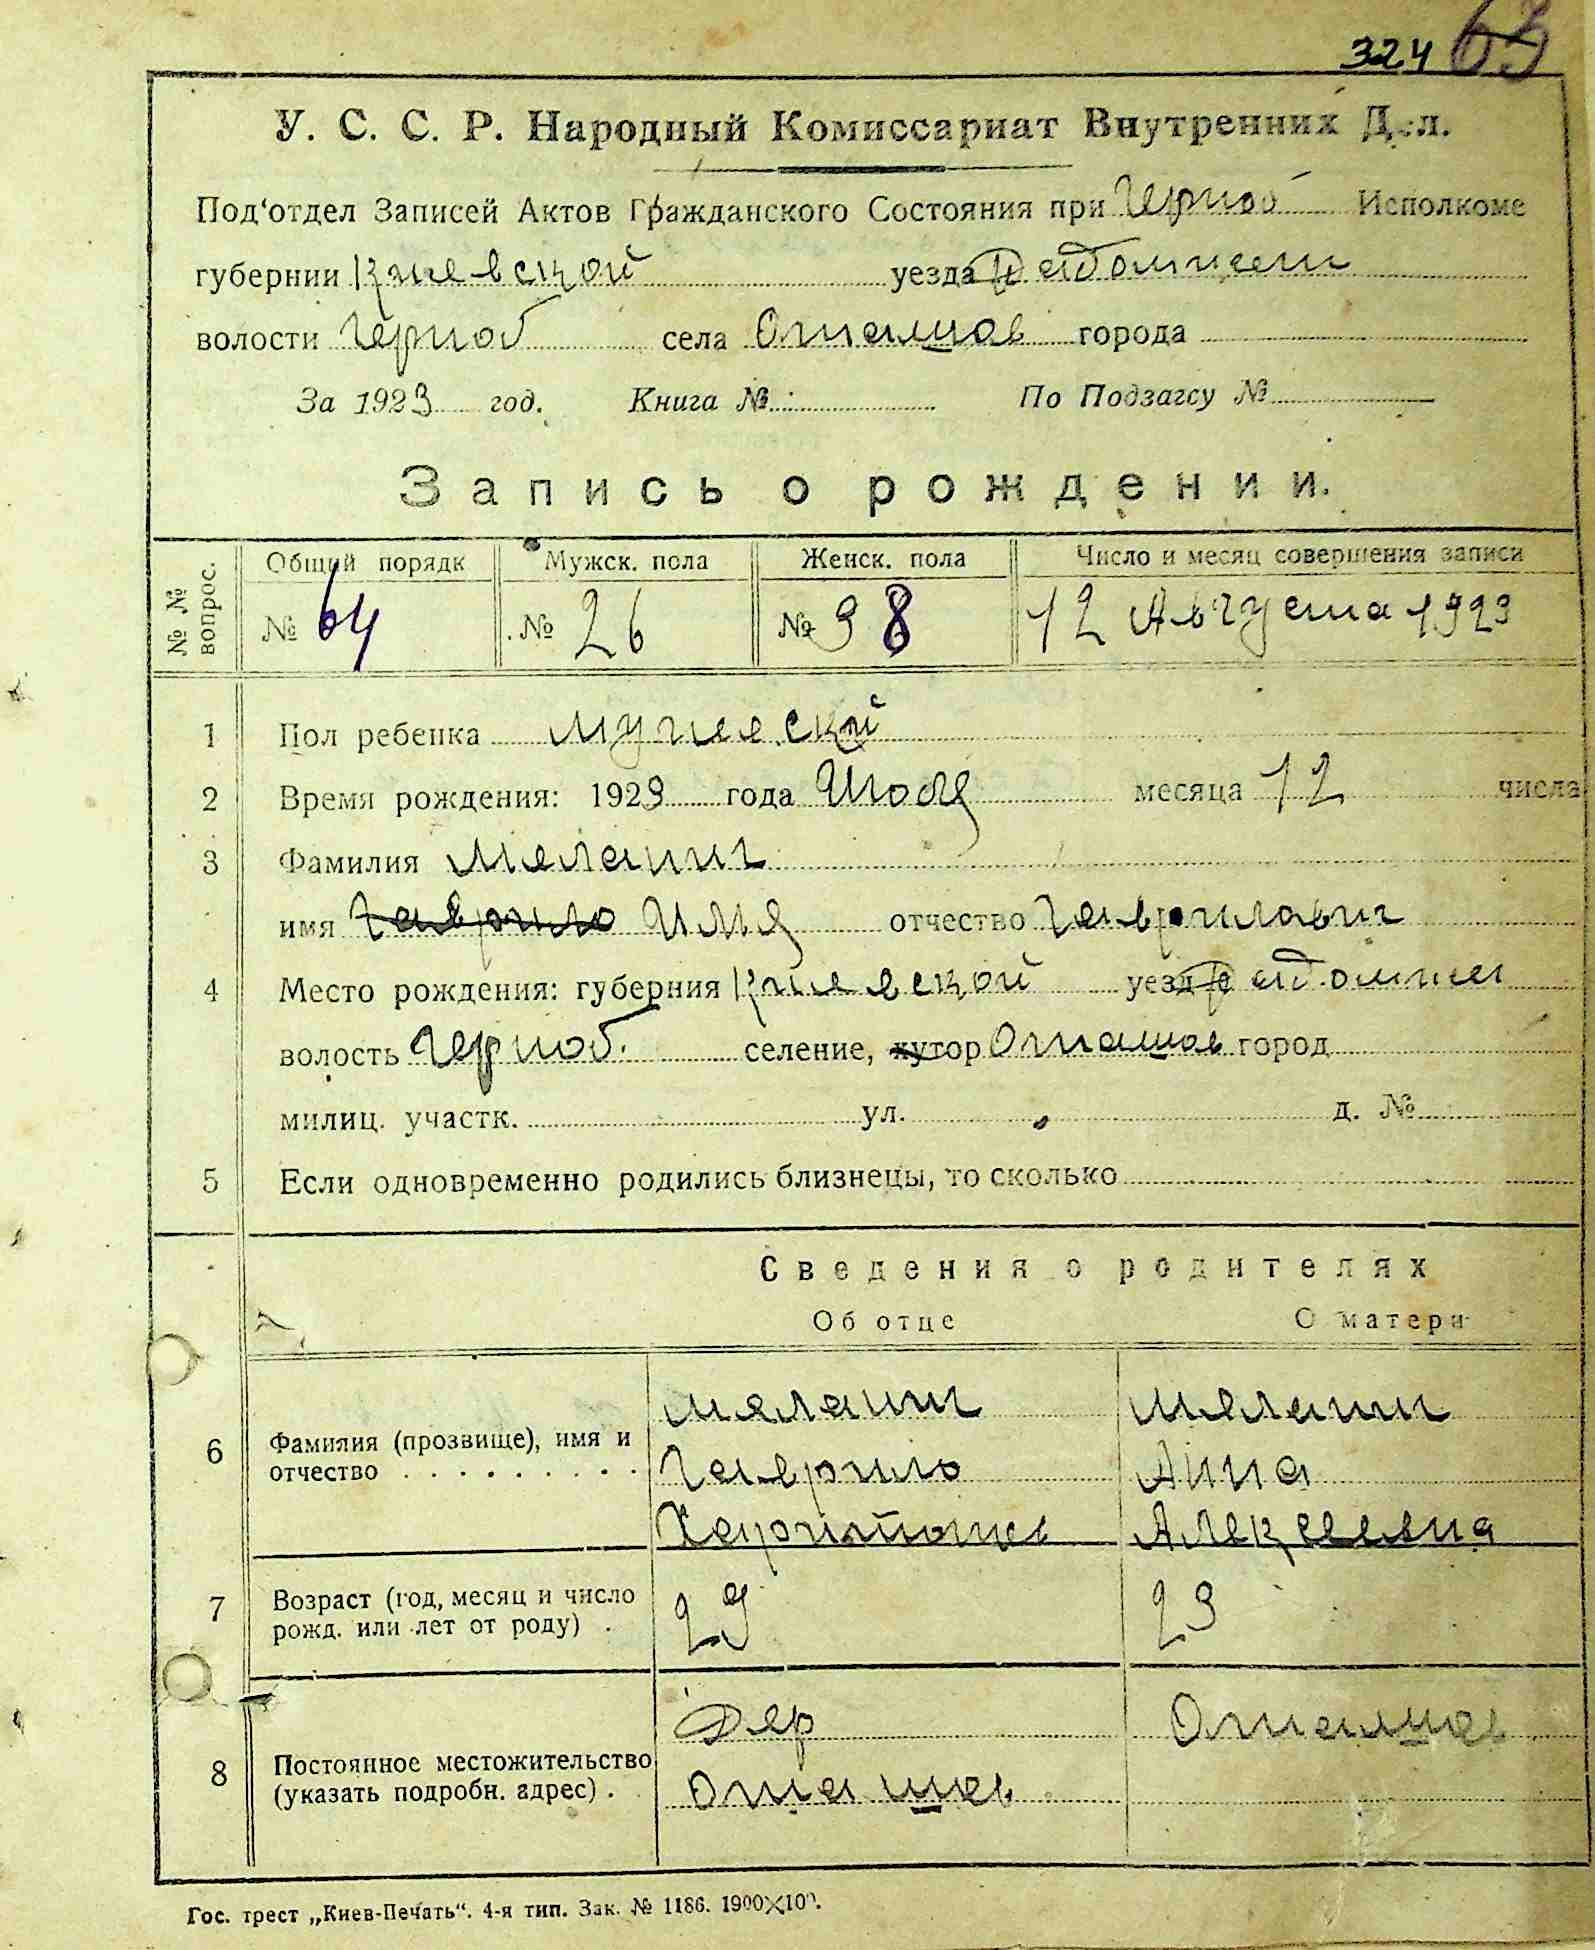 324 63
У. С. С. Р. Народный Комиссариат Внутренних Дел.
Под‘отдел Записей Актов Гражданского Состояния при Черноб Исполкоме
губернии Киевской уезда Радомысл
волости Черноб села Оташов города
За 1923 год. Книга № По Подзагсу №
Запись о рождении.
№ № вопрос. Общий порядк Мужск. пола Женск. пола Число и месяц совершения записи
№ 64 № 26 № 38 12 Августа 1923
1 Пол ребенка мужеский
2 Время рождения: 1923 года Июля месяца 12 числа
3 Фамилия
имя Гаврило Илля отчество Гаврилович
4 Место рождения: губерния Киевской уезд
волость Черноб. селение, хутор Оташов город
милиц. участк. ул. д. №
5 Если одновременно родились близнецы, то сколько
Сведения о родителях
Об отце О матери
6 Фамилия (прозвище), имя и отчество
Гаврило Анна
Алексеевна
7 Возраст (год, месяц и число рожд. или лет от роду) . 29 23
8 Постоянное местожительство (указать подробн. адрес) . Дер Оташов
Оташов
Гос. трест „Киев-Печать“. 4-я тип. Зак. № 1186. 1900×100.